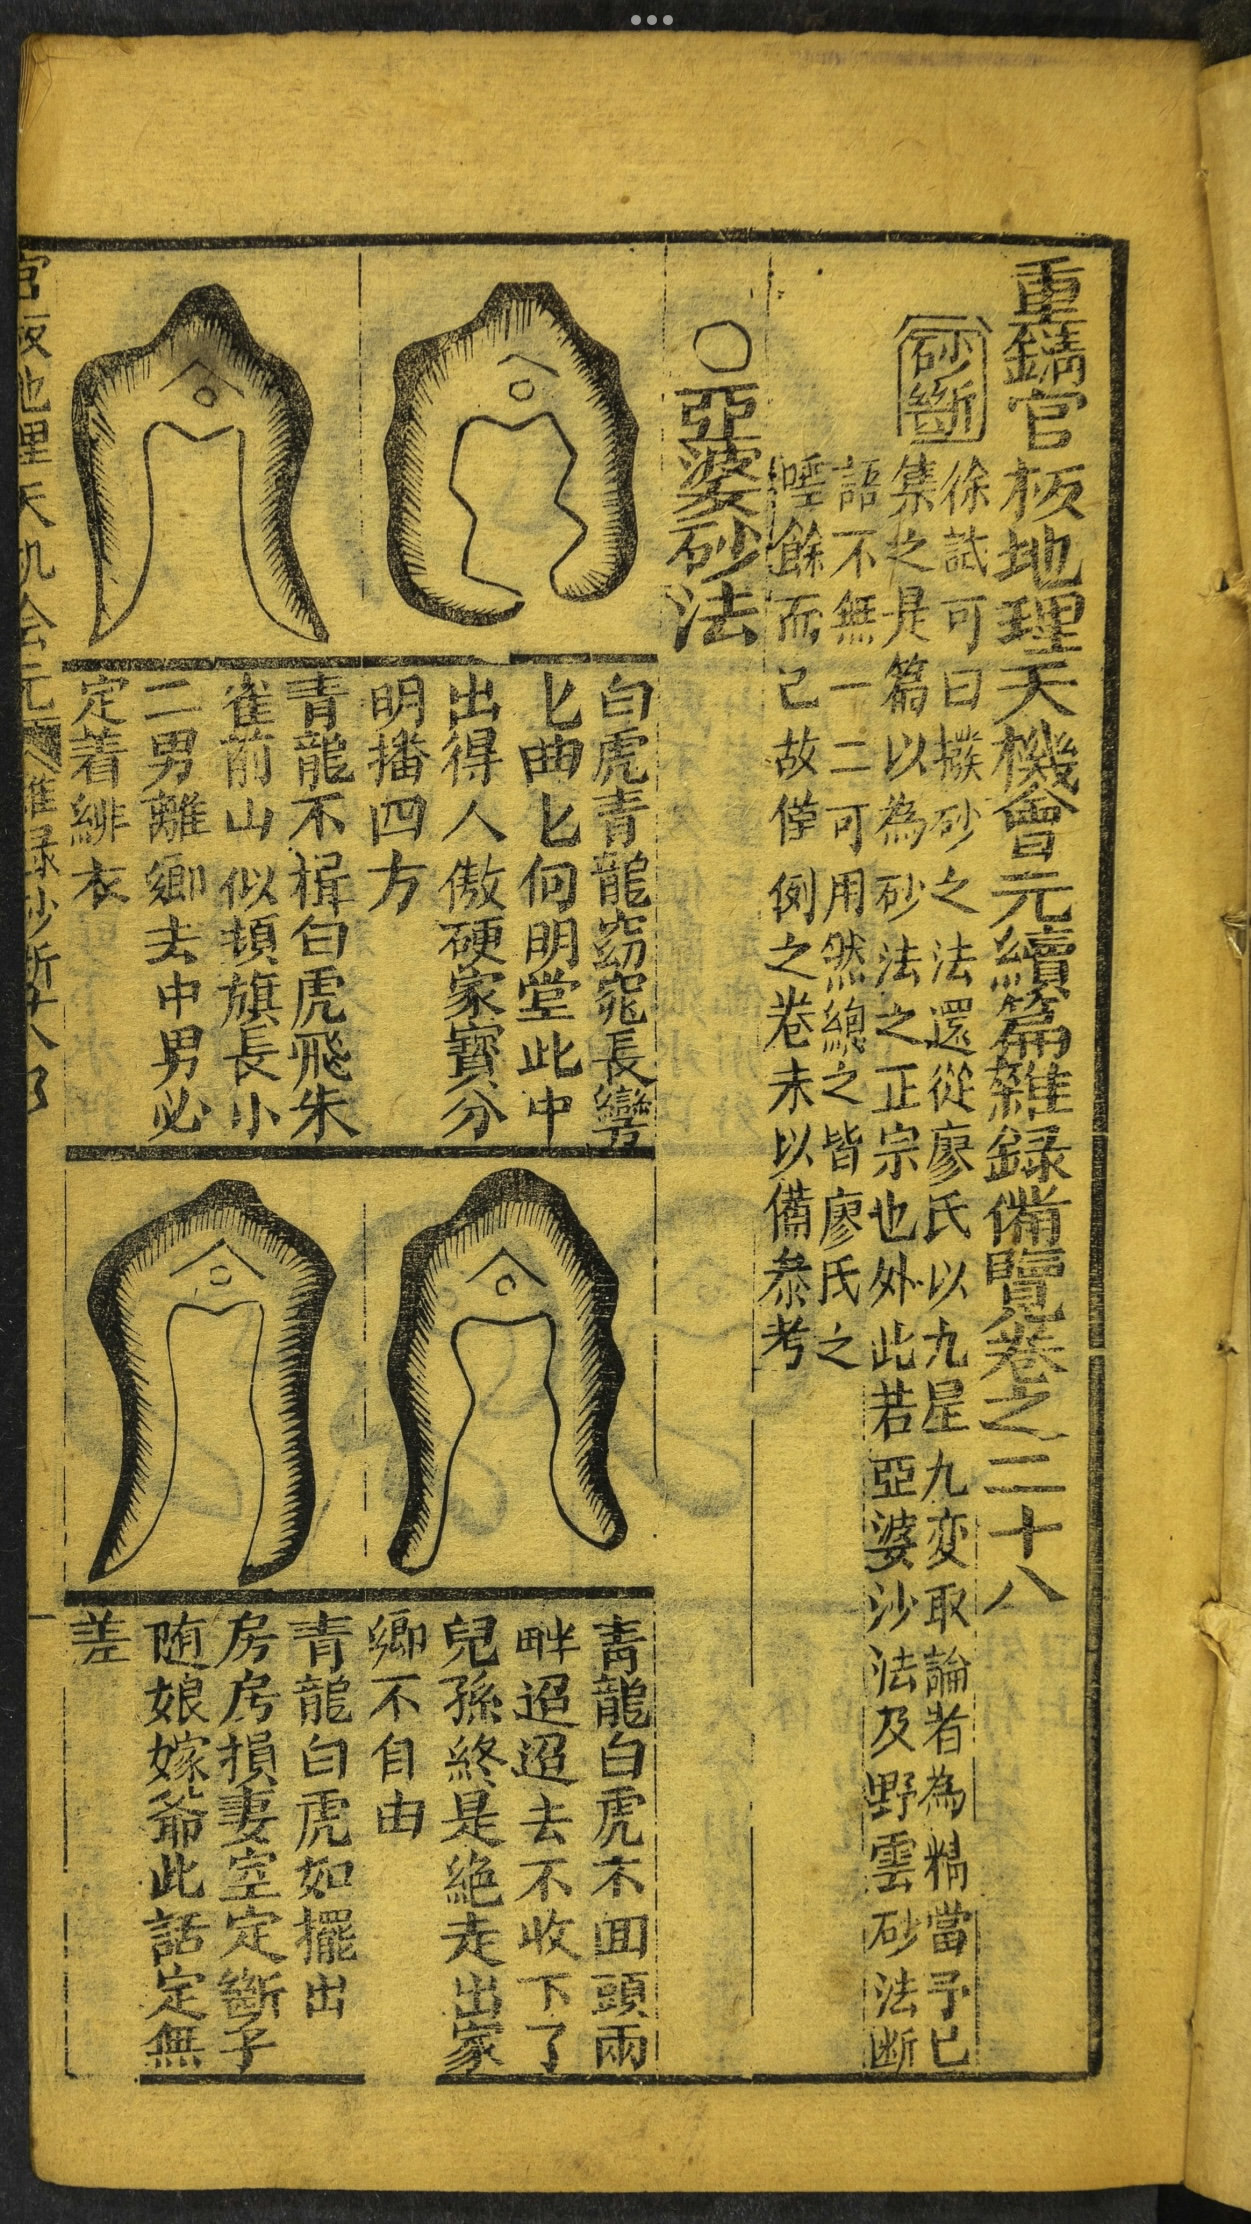 重鐫官板地理天機會元續篇雜録備覽卷之二十八
砂斷
徐試可曰撥砂之法還從廖氏以九星九変取論者為精當予已
集之是篇以為砂法之正宗也外此若亞婆沙法及野雲砂法断
語不無一二可用然總之皆廖氏之
唾餘而已故僅例之卷末以備叅考
○亞婆砂法
白虎青龍窈窕長彎
匕曲匕向明堂此中
出得人傲硬家寳分
明播四方
青龍不揖白虎飛朱
雀前山似頓旗長小
二男離鄉去中男必
定着緋衣
青龍白虎不囬頭兩
畔迢迢去不收下了
兒孫終是絶走出家
鄉不自由
青龍白虎如擺出
房房損妻室定斷子
随娘嫁爺此話定無
差
官板地理天机会元 雜録砂断廿八
一